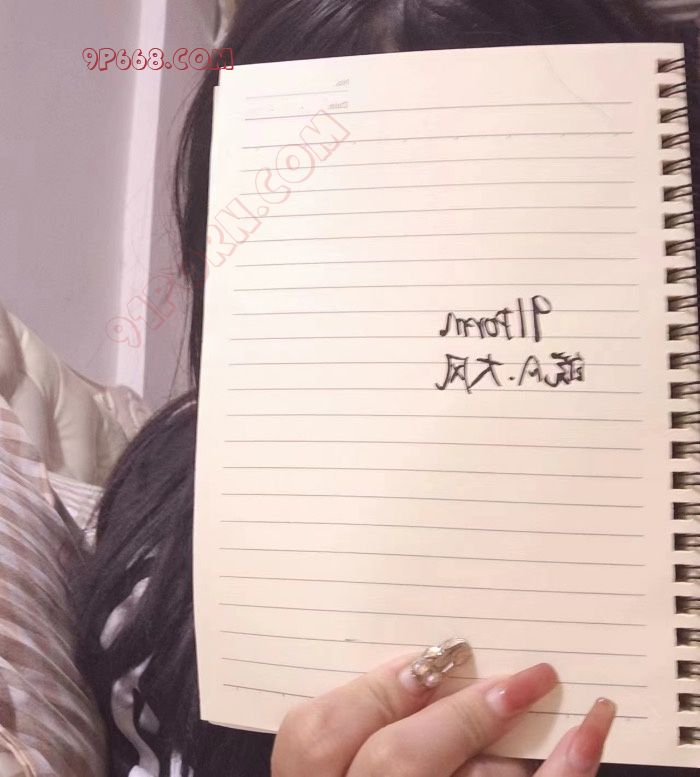 9P668.COM
No.
Date.
91PORN.COM
91Porn
大风